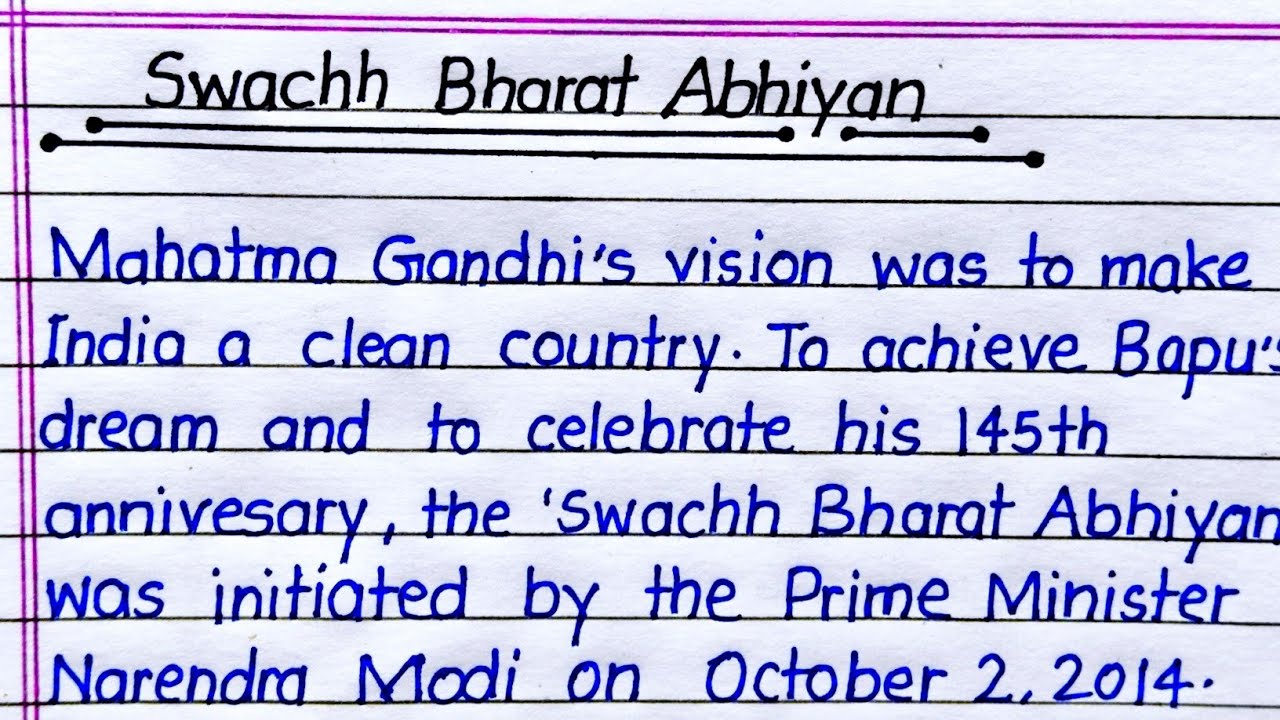 Swachh Bharat Abhiyan
Mahatma Gandhi's vision was to make
India a clean country. To achieve Bapu's
dream and to celebrate his 145th
annivesary, the 'Swachh Bharat Abhiyan
was initiated by the Prime Minister
Narendra Modi on October 2, 2014.